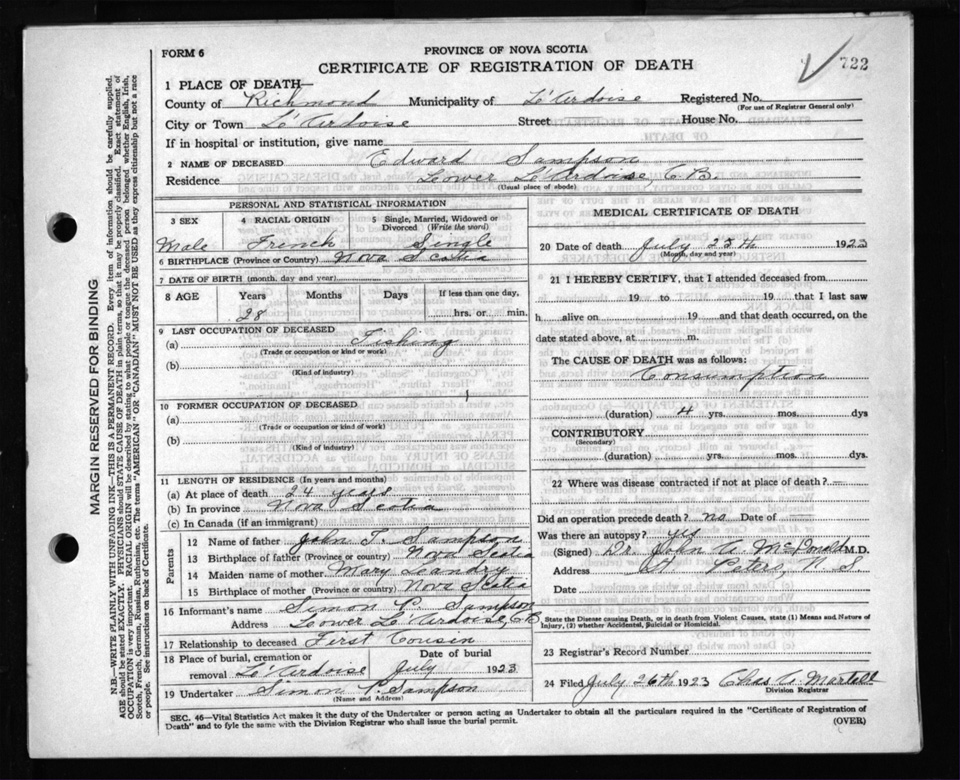 FORM 6
PROVINCE OF NOVA SCOTIA
CERTIFICATE OF REGISTRATION OF DEATH
722
1 PLACE OF DEATH—
County of Richmond Municipality of L'Ardoise Registered No.
(For use of Registrar General only)
City or Town L'Ardoise Street House No.
If in hospital or institution, give name
2 NAME OF DECEASED Edward Sampson
Residence Lower L'Ardoise, C.B.
(Usual place of abode)
PERSONAL AND STATISTICAL INFORMATION
3 SEX 4 RACIAL ORIGIN 5 Single, Married, Widowed or Divorced (Write the word)
Male French Single
6 BIRTHPLACE (Province or Country) Nova Scotia
7 DATE OF BIRTH (month, day and year)
8 AGE Years Months Days If less than one day,
28 hrs. or min.
9 LAST OCCUPATION OF DECEASED
(a) Fishing
(Trade or occupation or kind or work)
(b)
(Kind of industry)
10 FORMER OCCUPATION OF DECEASED
(a)
(Trade or occupation or kind or work)
(b)
(Kind of industry)
11 LENGTH OF RESIDENCE (In years and months)
(a) At place of death 24 years
(b) In province Nova Scotia
(c) In Canada (if an immigrant)
Parents
12 Name of father John T. Sampson
13 Birthplace of father (Province or country) Nova Scotia
14 Maiden name of mother Mary Landry
15 Birthplace of mother (Province or country) Nova Scotia
16 Informant's name Simon P. Sampson
Address Lower L'Ardoise, C.B.
17 Relationship to deceased First Cousin
18 Place of burial, cremation or removal L'Ardoise Date of burial July 1923
19 Undertaker Simon P. Sampson
(Name and Address)
MEDICAL CERTIFICATE OF DEATH
20 Date of death July 25th 1923
(Month, day and year)
21 I HEREBY CERTIFY, that I attended deceased from
19 to 19 that I last saw
h alive on 19 and that death occurred, on the
date stated above, at m.
The CAUSE OF DEATH was as follows:
Consumption
(duration) 4 yrs. mos. dys
CONTRIBUTORY
(Secondary)
(duration) yrs. mos. dys.
22 Where was disease contracted if not at place of death?
Did an operation precede death? no Date of
Was there an autopsy? yes
(Signed) Dr. John A. McDonald M.D.
Address St. Peters, N.S.
Date
State the Disease causing Death, or in death from Violent Causes, state (1) Means and Nature of
Injury, (2) whether Accidental, Suicidal or Homicidal.
23 Registrar's Record Number
24 Filed July 26th 1923 Chas A. Martell
Division Registrar
SEC. 46—Vital Statistics Act makes it the duty of the Undertaker or person acting as Undertaker to obtain all the particulars required in the "Certificate of Registration of
Death" and to fyle the same with the Division Registrar who shall issue the burial permit.
(OVER)
MARGIN RESERVED FOR BINDING
N.B.—WRITE PLAINLY WITH UNFADING INK—THIS IS A PERMANENT RECORD. Every item of information should be carefully supplied.
AGE should be stated EXACTLY. PHYSICIANS should STATE CAUSE OF DEATH in plain terms, so that it may be properly classified. Exact statement of
OCCUPATION is very important. RACIAL ORIGIN will be described by stating to what people or tongue the deceased person belonged whether English, Irish,
Scotch, French, German, Russian, Ruthenian, etc. The terms "AMERICAN" or "CANADIAN" MUST NOT BE USED as they express citizenship but not a race
or people. See instructions on back of Certificate.